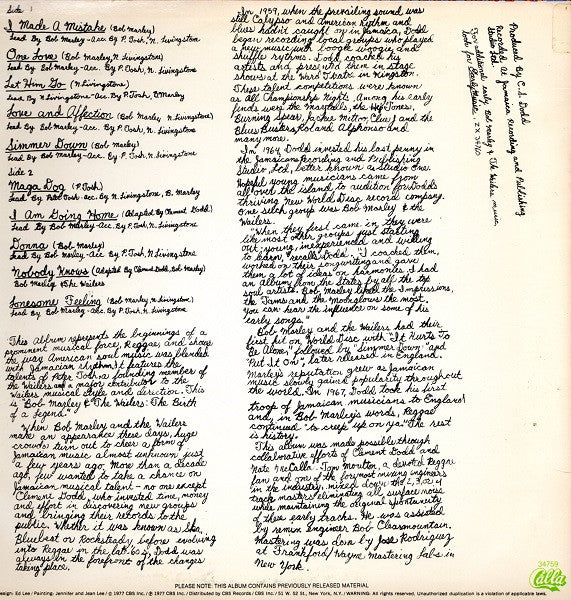 Side 1
I Made A Mistake (Bob Marley)
Lead By Bob Marley-Acc. By P. Tosh, N. Livingstone
One Love (Bob Marley, N. Livingstone)
Lead By Bob Marley-Acc. By P. Tosh, N. Livingstone
Let Him Go (N. Livingstone)
Lead By N. Livingstone-Acc. By P. Tosh, B. Marley
Love and Affection (Bob Marley, N. Livingstone)
Lead By Bob Marley-Acc. By P. Tosh, N. Livingstone
Simmer Down (Bob Marley)
Lead By Bob Marley-Acc. By P. Tosh, N. Livingstone
Side 2
Maga Dog (P. Tosh)
Lead By Peter Tosh-acc. by N. Livingstone, B. Marley
I Am Going Home (Adapted By Clement Dodd)
Lead By Bob Marley-Acc. By P. Tosh, N. Livingstone
Donna (Bob Marley)
Lead By Bob Marley-Acc. By P. Tosh, N. Livingstone
Nobody Knows (Adapted By Clement Dodd, Bob Marley)
Bob Marley & The Wailers
Lonesome Feeling (Bob Marley, N. Livingstone)
Lead By Bob Marley-Acc. By P. Tosh, N. Livingstone
This Album represents the beginnings of a
prominent musical force, Reggae, and shows
the way American soul music was blended
with Jamaican rhythms. It features the
talents of Peter Tosh, a founding member of
the Wailers and a major contributor to the
Wailers musical style and direction. This
is "Bob Marley & The Wailers: The Birth
of a Legend."
When Bob Marley and the Wailers
make an appearance these days, huge
crowds turn out to cheer a form of
Jamaican music almost unknown just
a few years ago. More than a decade
ago, few wanted to take a chance on
Jamaican musical talent - no one except
Clement Dodd, who invested time, money
and effort in discovering new groups
and bringing their records to the
public. Whether it was known as Ska,
Bluebeat or Rocksteady before evolving
into Reggae in the late 60s, Dodd was
always in the forefront of the changes
taking place.
In 1959, when the prevailing sound was
still Calypso and American Rhythm and
blues hadn't caught on in Jamaica, Dodd
began recording local groups who played
a new music with boogie woogie and
shuffle rhythms. Dodd coached his
artists and presented them in stage
shows at the Ward Theatre in Kingston.
These talent competitions were known
as All Championship Night. Among his early
finds were the Maytals, the Hep Tones,
Burning Spear, Jackie Mittoo, Clue J and the
Blues Busters, Roland Alphonso and
many more.
In 1964 Dodd invested his last penny in
the Jamaican Recording and Publishing
Studio, Ltd., better known as Studio One.
Hopeful young musicians came from
all over the island to audition for Dodd's
thriving New World Disc record company.
One such group was Bob Marley & the
Wailers.
"When they first came in they were
like most other groups just starting
out; young, inexperienced and willing
to learn," recalls Dodd. "I coached them,
worked on their songwriting and gave
them a lot of ideas on harmonies. I had
an album from the States by all the top
soul artists. Bob Marley liked the Impressions,
the Tams and the Moonglows the most.
You can hear the influence on some of his
early songs."
Bob Marley and the Wailers had their
first hit on World Disc with "It Hurts To
Be Alone," followed by "Simmer Down" and
"Put It On", later released in England.
Marley's reputation grew as Jamaican
music slowly gained popularity throughout
the world. In 1967, Dodd took his first
troop of Jamaican musicians to England
and, in Bob Marley's words, Reggae
continued "to creep up on ya." The rest
is history.
This album was made possible through
collaborative efforts of Clement Dodd and
Nate McCalla. Tom Moulton, a devoted Reggae
fan and one of the foremost mixing engineers
in the industry, mixed down the 1, 3, or 4
track masters eliminating all surface noise
while maintaining the original spontaneity
of these early tracks. He was assisted
by remix Engineer Bob Clearmountain.
Mastering was done by Jose Rodriguez
at Frankford/Wayne Mastering Labs in
New York.
Produced by C.S. Dodd
Recorded At Jamaica Recording and Publishing
Studio Ltd.
For additional early Bob Marley & The Wailers music
look for ZX 34760
34759
Calla
PLEASE NOTE: THIS ALBUM CONTAINS PREVIOUSLY RELEASED MATERIAL
esign: Ed Lee / Painting: Jennifer and Jean Lee / © 1977 CBS Inc. / ℗ 1977 CBS Inc. / Distributed by CBS Records / CBS Inc. / 51 W. 52 St., New York, N.Y. / WARNING: All rights reserved. Unauthorized duplication is a violation of applicable laws.